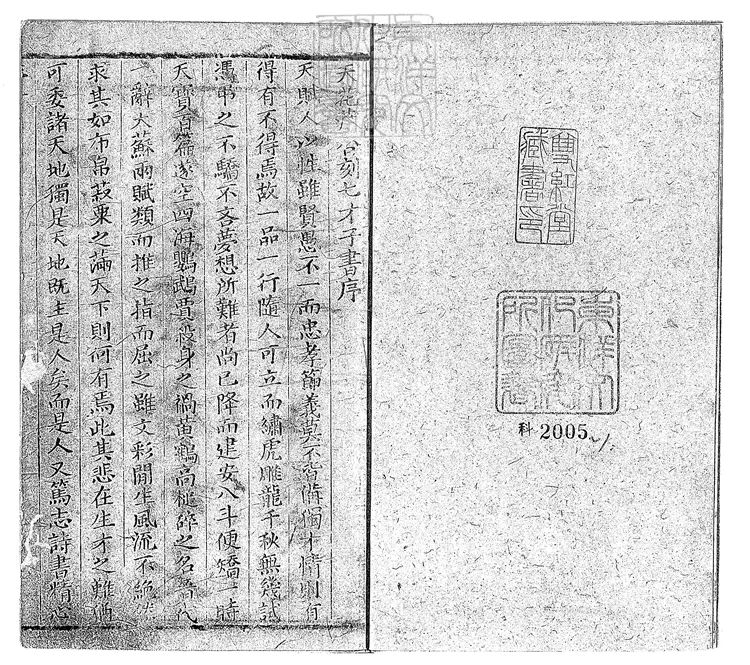 雙紅堂
藏書印
東洋文
化研究
所圖書
科 2005
天花藏合刻七才子書序
天賦人以性雖賢愚不一而忠孝節義莫不皆備獨才情則有
得有不得焉故一品一行隨人可立而繡虎雕龍千秋無幾試
憑弔之不驕不吝夢想所難者尚已降而建安八斗便矯一時
天寶百篇遂空四海鸚鵡賈殺身之禍黃鶴高槌碎之名晉代
一辭大蘇兩賦類而推之指而屈之雖文彩間生風流不絕然
求其如布帛菽粟之滿天下則何有焉此其悲在生才之難猶
可委諸天地獨是天地既生是人矣而是人又篤志詩書精心